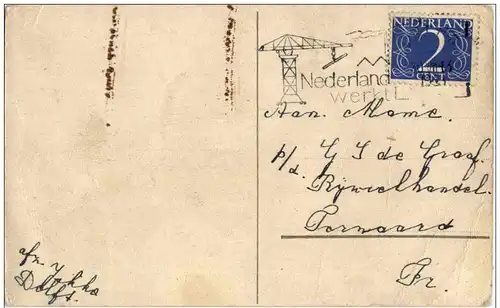 NEDERLAND
2
CENT
Nederland
werkt
Aan Mome.
p/a. G J de Graaf.
Rijwielhandel.
Ternaard
Fr.
afz.
Delft.